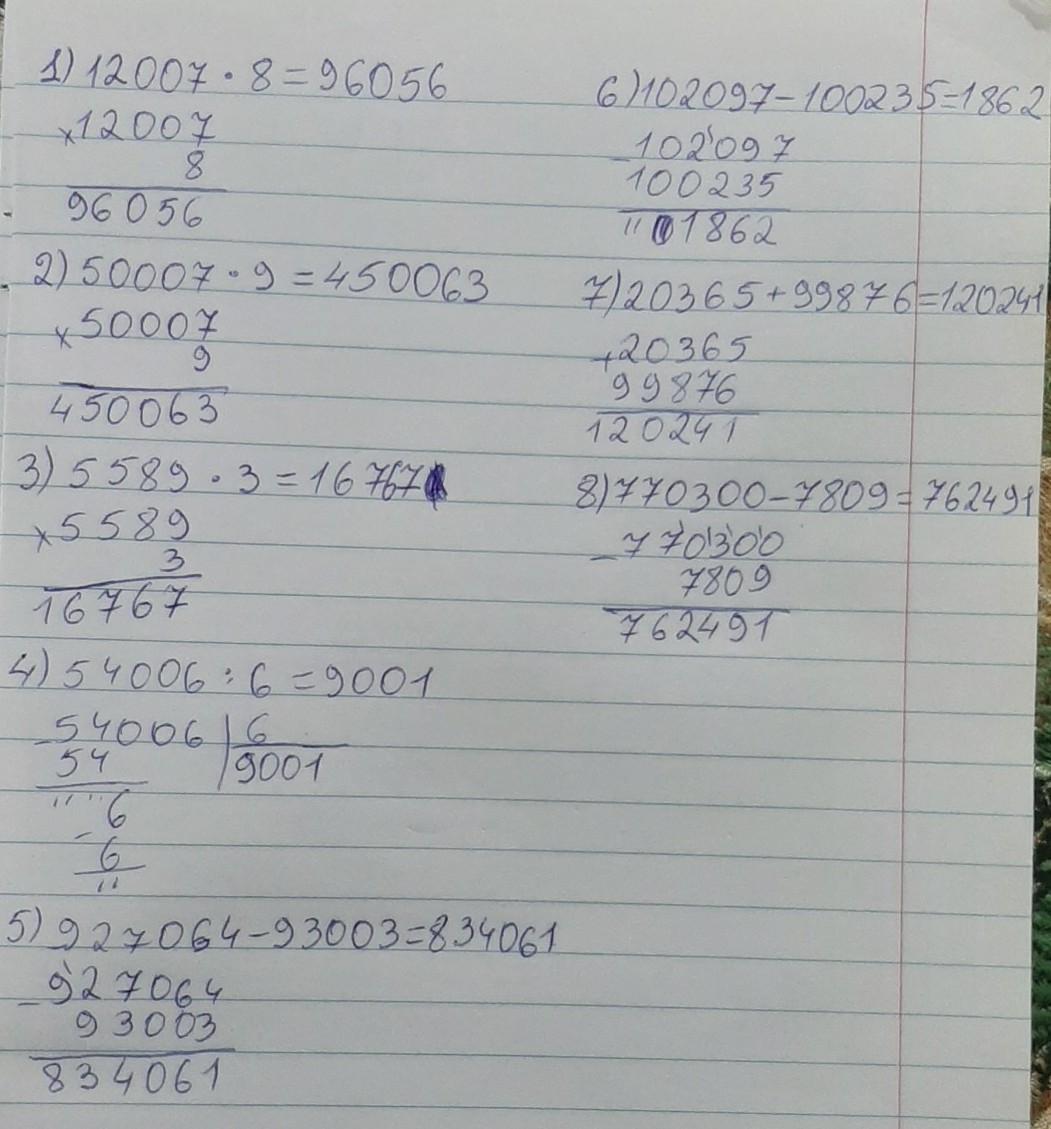 1) 12007 · 8 = 96056
× 12007
8
96056
2) 50007 · 9 = 450063
× 50007
9
450063
3) 5589 · 3 = 16767
× 5589
3
16767
4) 54006 : 6 = 9001
- 54006 | 6
54 | 9001
'' '' 6
- 6
''
5) 927064 - 93003 = 834061
- 927064
93003
834061
6) 102097 - 100235 = 1862
- 102097
100235
'' 01862
7) 20365 + 99876 = 120241
+ 20365
99876
120241
8) 770300 - 7809 = 762491
- 770300
7809
762491